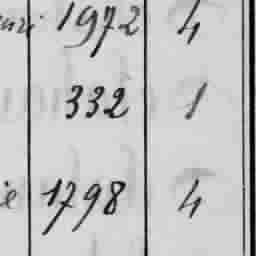 1972 4
332 1
1798 4